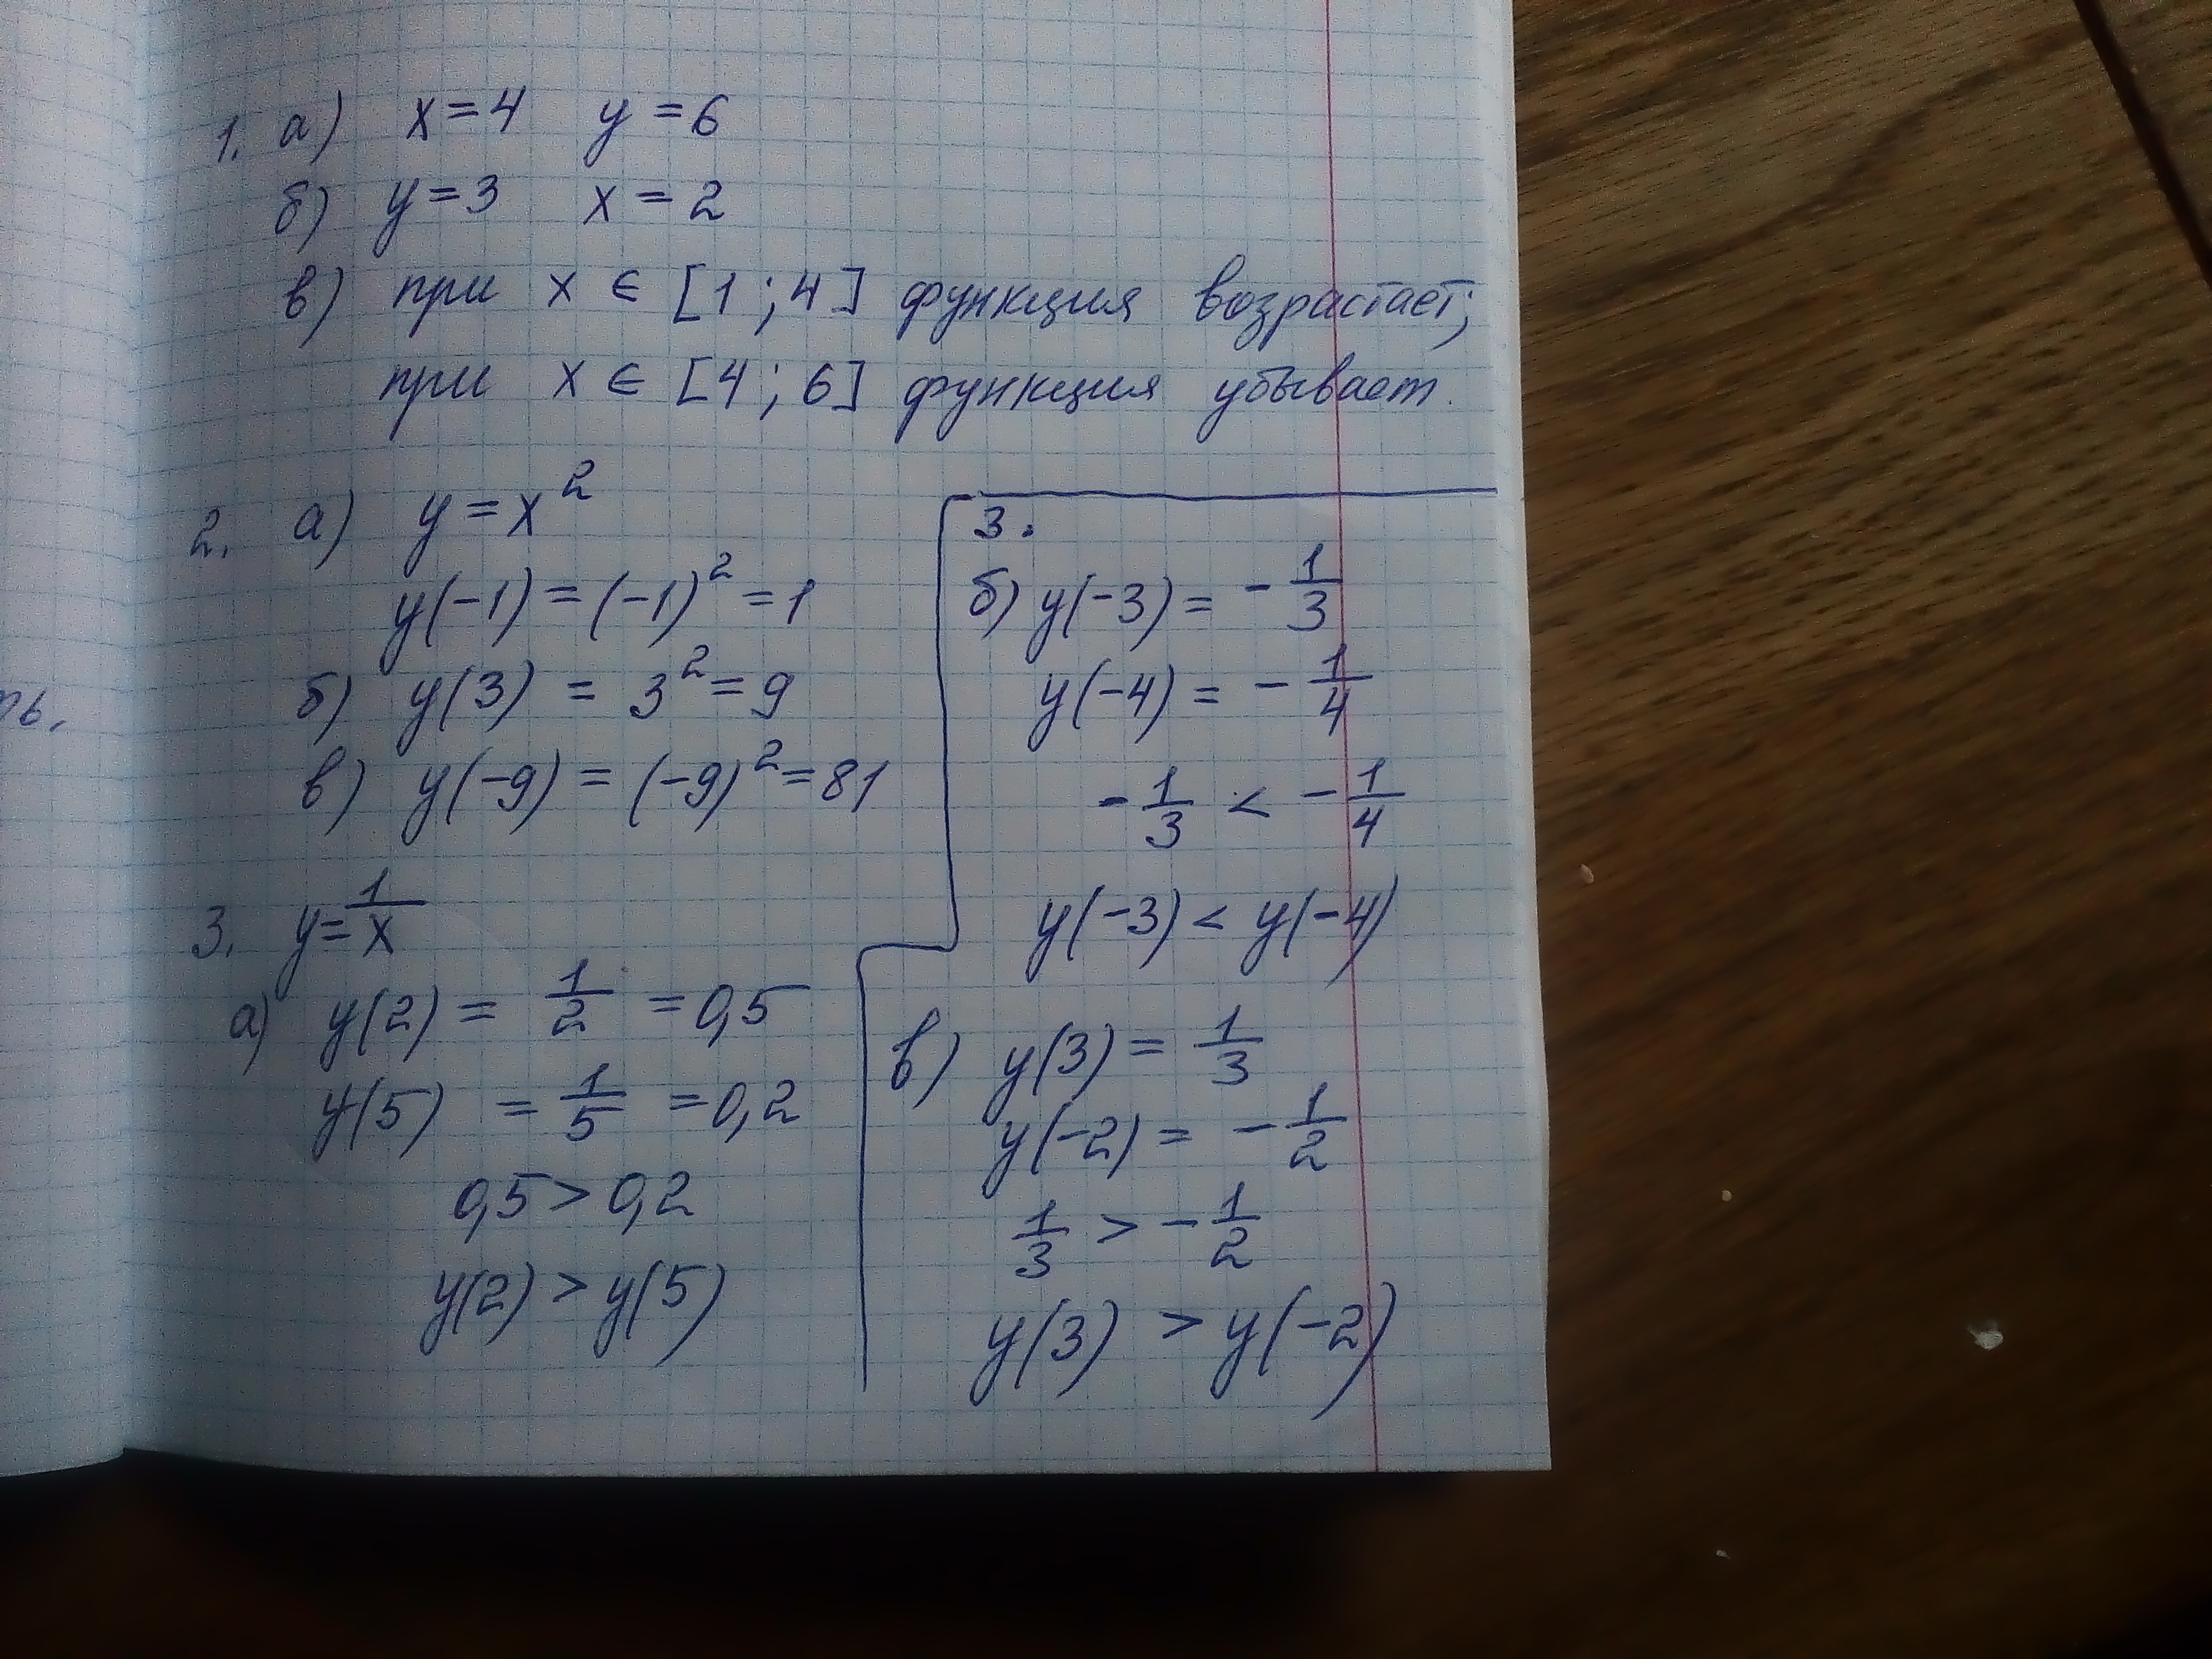 1. а) x = 4 y = 6
б) y = 3 x = 2
в) при x ∈ [1 ; 4] функция возрастает;
при x ∈ [4 ; 6] функция убывает.
2. а) y = x²
y(-1) = (-1)² = 1
б) y(3) = 3² = 9
в) y(-9) = (-9)² = 81
3. y = 1/x
а) y(2) = 1/2 = 0,5
y(5) = 1/5 = 0,2
0,5 > 0,2
y(2) > y(5)
3.
б) y(-3) = - 1/3
y(-4) = - 1/4
- 1/3 < - 1/4
y(-3) < y(-4)
в) y(3) = 1/3
y(-2) = - 1/2
1/3 > - 1/2
y(3) > y(-2)